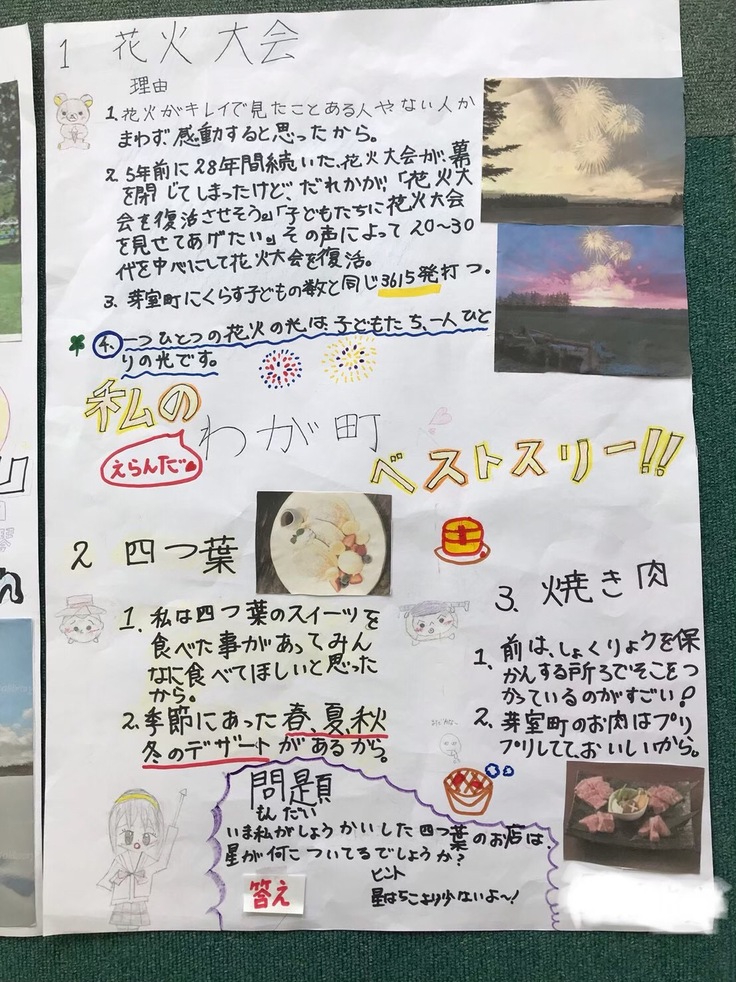 1 花火大会
理由
1. 花火がキレイで見たことある人やない人か
まわず感動すると思ったから。
2. 5年前に28年間続いた、花火大会が、幕
を閉じてしまったけど、だれかが、「花火大
会を復活させそう。」「子どもたちに花火大会
を見せてあげたい。」その声によって20〜30
代を中心にして花火大会を復活。
3. 芽室町にくらす子どもの数と同じ3615発打つ。
4. 一つひとつの花火の光は、子どもたち、一人ひと
りの光です。
私の
えらんだ
わが町
ベストスリー!!
2 四つ葉
1. 私は四つ葉のスイーツを
食べた事があってみん
なに食べてほしいと思った
から。
2. 季節にあった春、夏、秋
冬のデザートがあるから。
3. 焼き肉
1. 前は、しょくりょうを保
かんする所ろでそこをつ
かっているのがすごい!
2. 芽室町のお肉はプリ
プリしてて、おいしいから。
問題
もんだい
いま私がしょうかいした四つ葉のお店は、
星が何こついてるでしょうか?
ヒント
星は5こより少ないよ〜!
答え